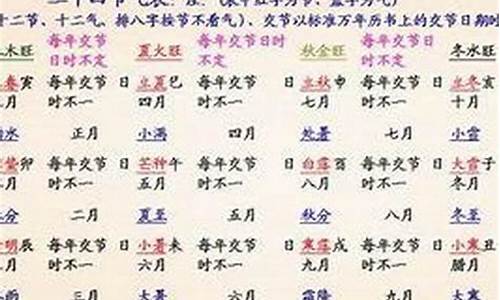 二十四节气表
十二节、十二气，排八字按节不看气）、交节以标准万年历书上的交节日期时
木旺 每年交节日时不定 夏火旺 每年交节日时不定 秋金旺 每年交节日时不定 冬水旺
春寅 每年交节日 立夏巳 每年交节日 立秋申 每年交节日 立冬亥
月 时不一 四月 时不一 七月 时不一 十月
水 正月 小满 四月 处暑 七月 小雪
蛰卯 每年交节日 芒种午 每年交节日 白露酉 每年交节日 大雪子
月 时不一 五月 时不一 八月 时不一 冬月
分 二月 夏至 五月 秋分 八月 冬至
明辰 每年交节日 小暑未 每年交节日 寒露戌 每年交节日 小寒丑
月 时不一 六月 时不一 九月 时不一 腊月
雨 三月 大暑 六月 霜降 九月 大寒